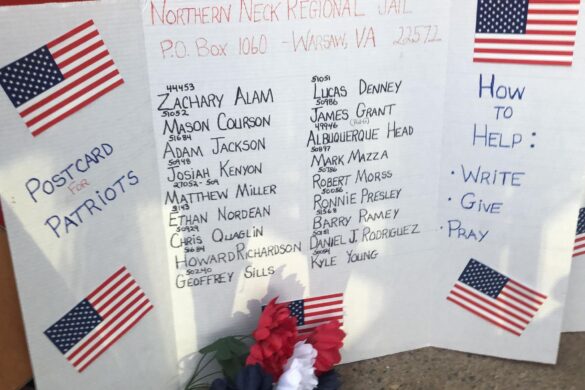 NORTHERN NECK REGIONAL JAIL
P.O. BOX 1060 - WARSAW, VA 22572
POSTCARD
FOR
PATRIOTS
44453
ZACHARY ALAM
51052
MASON COURSON
51684
ADAM JACKSON
50948
JOSIAH KENYON
27052-509
MATTHEW MILLER
ETHAN NORDEAN
50929
CHRIS QUAGLIN
HOWARD RICHARDSON
50240
GEOFFREY SILLS
51051
LUCAS DENNEY
50986
JAMES GRANT
49946
ALBUQUERQUE HEAD
50897
MARK MAZZA
50786
ROBERT MORSS
50086
RONNIE PRESLEY
51568
BARRY RAMEY
DANIEL J. RODRIGUEZ
KYLE YOUNG
HOW
TO
HELP:
• WRITE
• GIVE
• PRAY